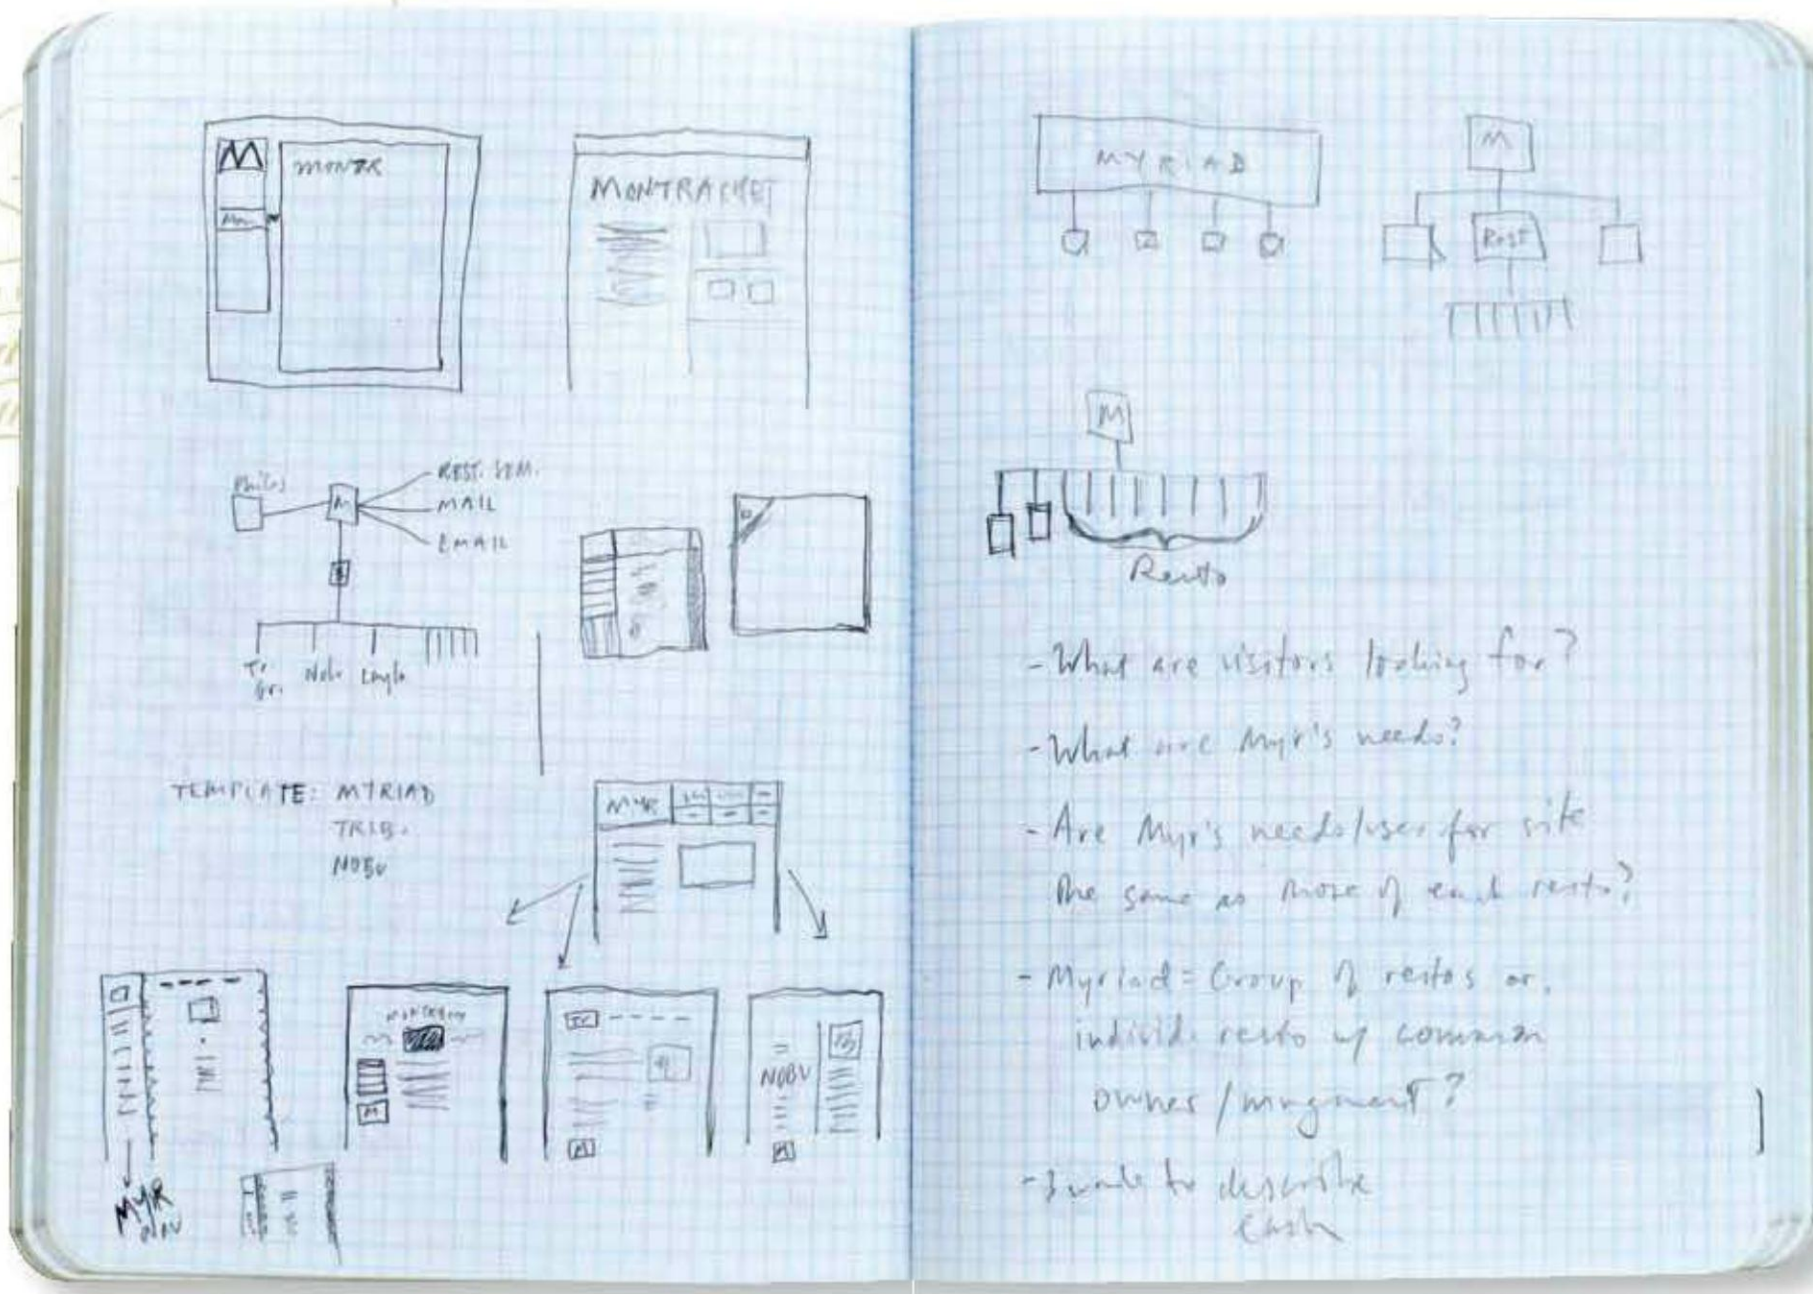 M
MONTR
MONTRACHET
REST. SEM.
M
MAIL
EMAIL
Tr
Gr.
Nobu
Layla
TEMPLATE: MYRIAD
TRIB.
NOBU
MYR
MONTRACHET
M
Tr
M
NOBU
M
MYR
NAV
MYRIAD
M
Rest
M
Resto
- What are visitors looking for?
- What are Myr's needs?
- Are Myr's needs/uses for site
the same as those of each resto?
- Myriad = Group of restos or
individ. resto w/ common
owner/mngment?
to describe
each